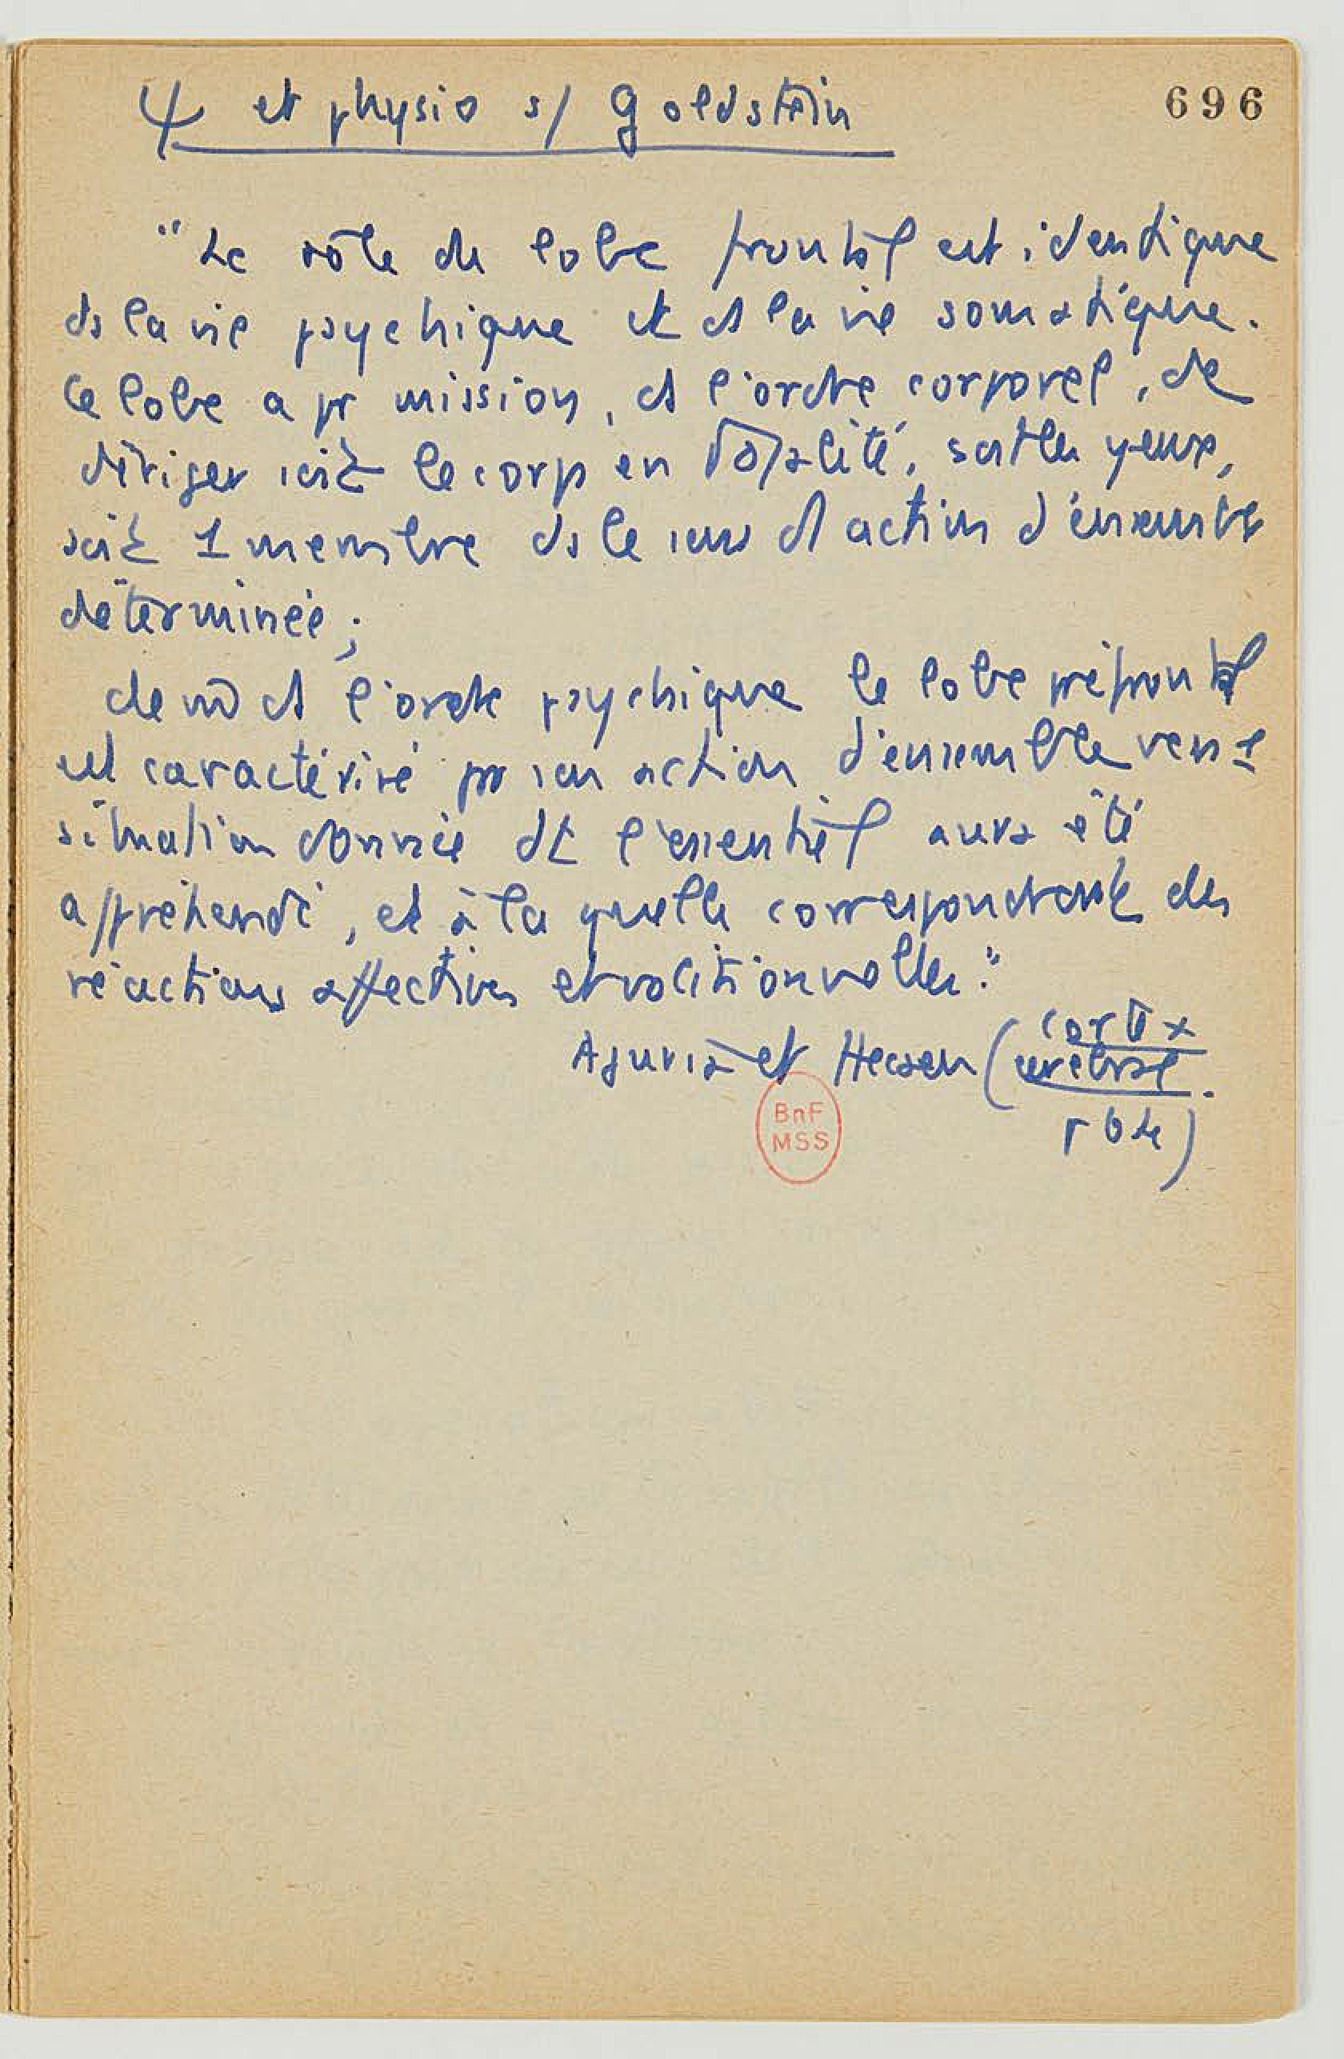 696
Ψ et physio s/ Goldstein
"Le rôle du lobe frontal est identique
ds la vie psychique et ds la vie somatique.
Ce lobe a pr mission, ds l'ordre corporel, de
diriger soit le corps en totalité, soit les yeux,
soit 1 membre ds le sens d'1 action d'ensemble
déterminée ;
de m̂ ds l'ordre psychique le lobe préfrontal
est caractérisé par son action d'ensemble vers 1
situation donnée dt l'essentiel aura été
appréhendé, et à laquelle correspondront des
réactions affectives et volitionnelles."
Ajuria et Hecaen (cortex
cérébral.
BnF
MSS